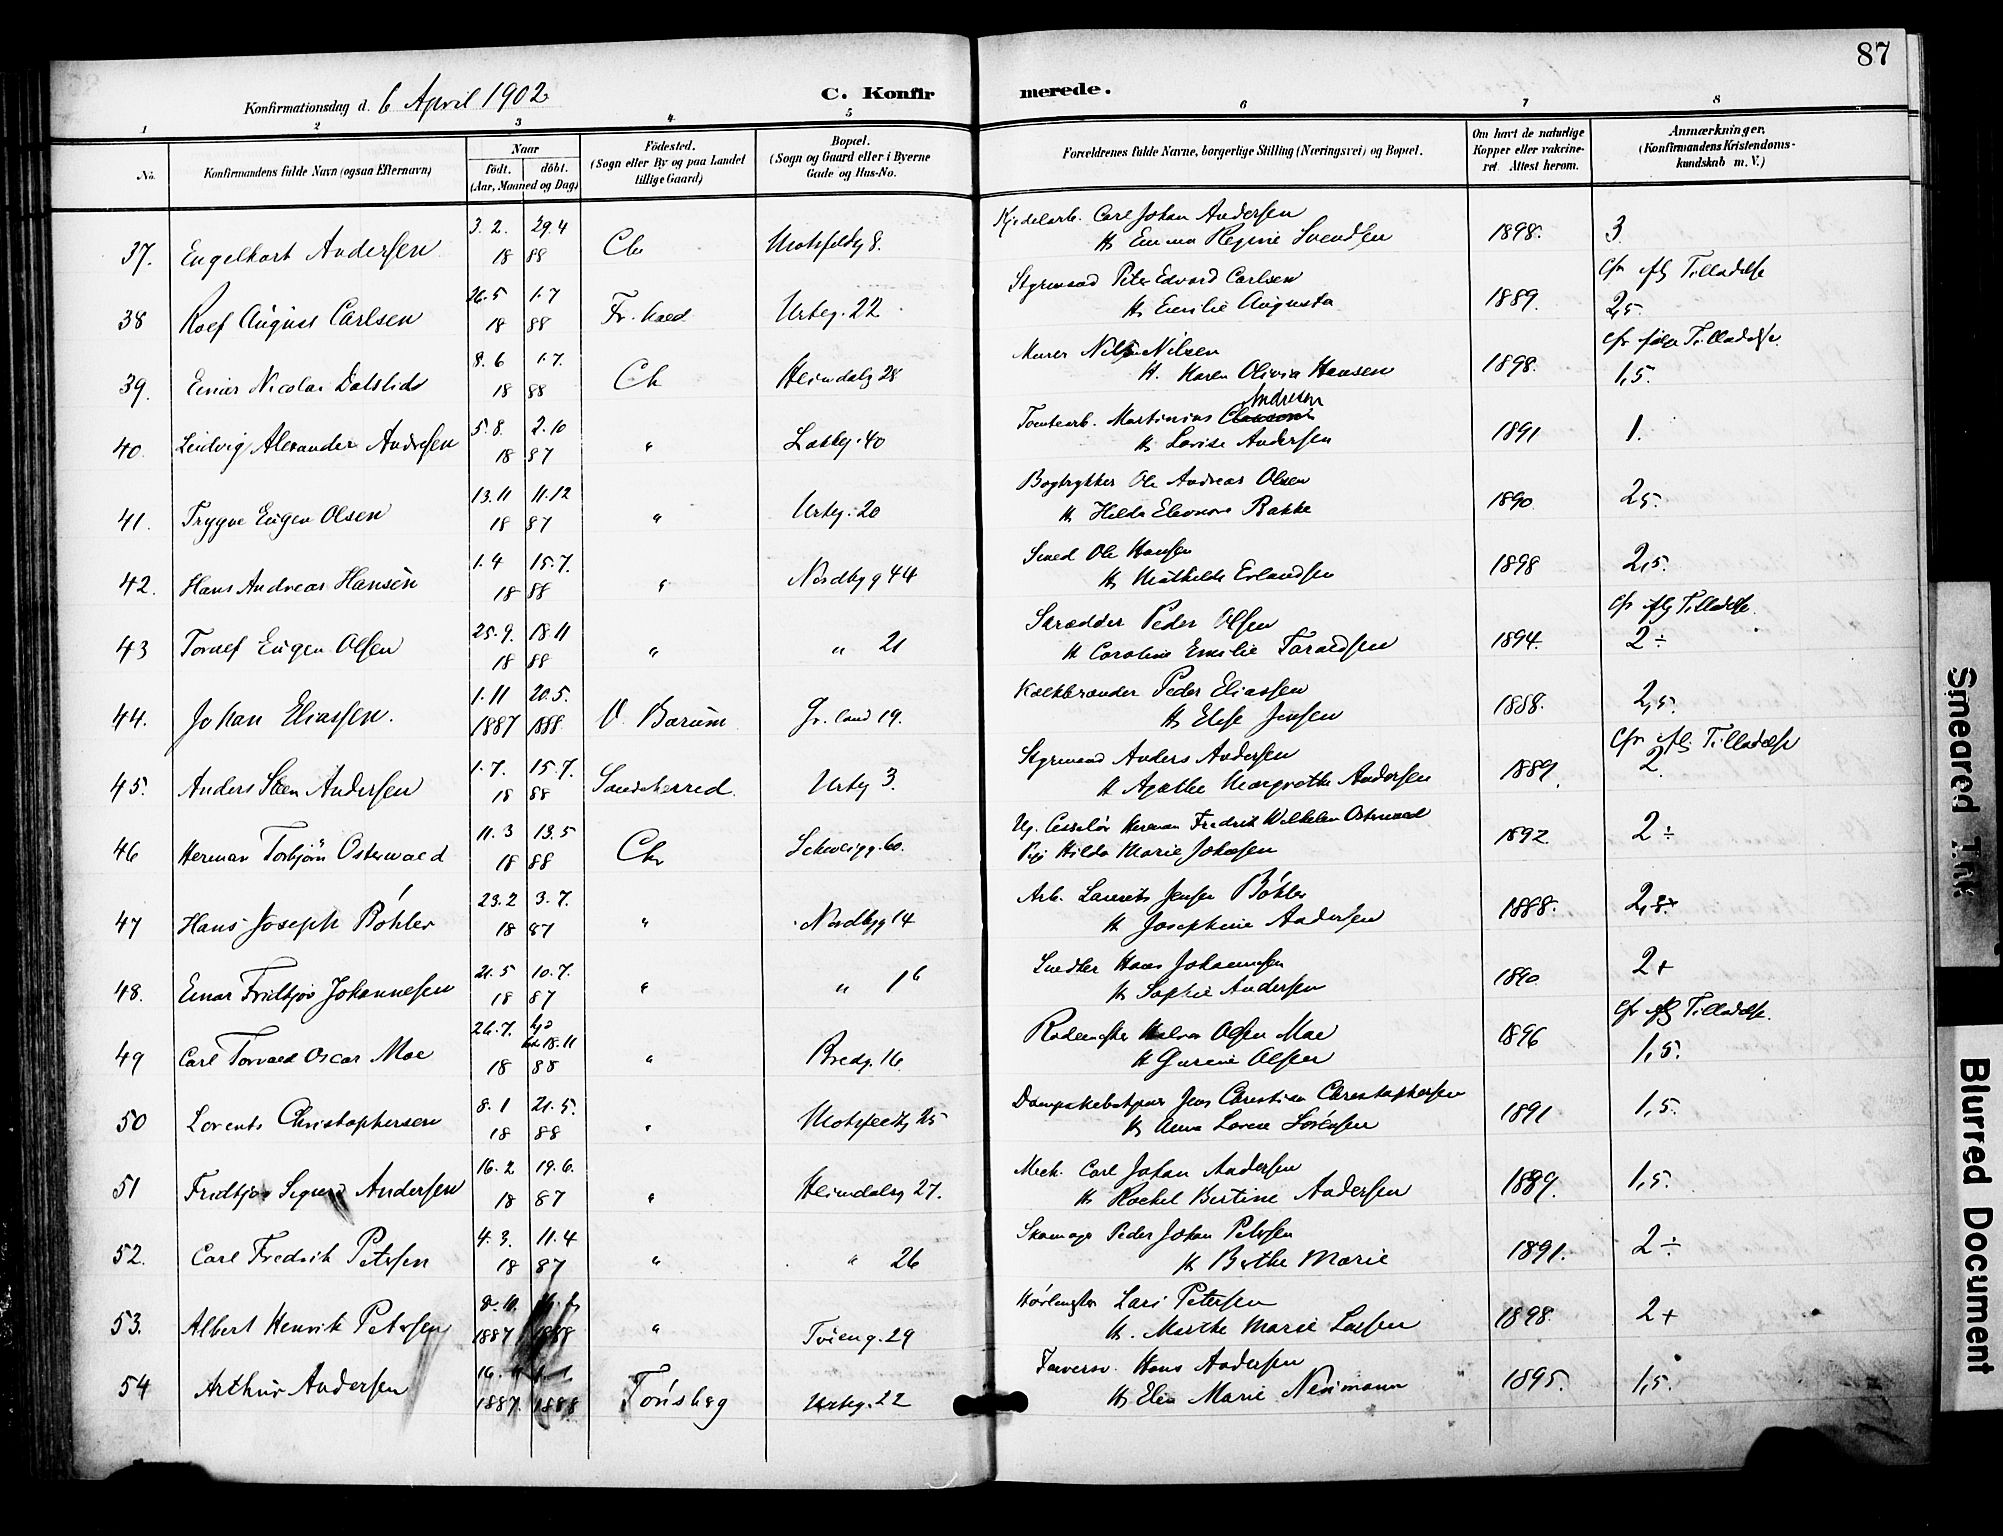 87
Konfirmationsdag d. 6 April 1902
C. Konfirmerede.
1 2 3 4 5 6 7 8
No. Konfirmandens fulde Navn (ogsaa Efternavn) Naar født. døbt. (Aar, Maaned og Dag) Fødested. (Sogn eller By og paa Landet tillige Gaard) Bopæl. (Sogn og Gaard eller i Byerne Gade og Hus-No. Forældrenes fulde Navne, borgerlige Stilling (Næringsvei) og Bopæl. Om havt de naturlige Kopper eller vaccineret. Attest herom. Anmærkninger. (Konfirmandens Kristendomskundskab m. V.)
3.2. 29.4 Kjedelarb. Carl Johan Andersen
37. Engelhart Andersen 18 88 Chr Motzfeldtg 8. H Emma Regine Svendsen 1898. 3
26.5 1.7 Styrmand Peter Edvard Carlsen Tilladelse
38 Rolf August Carlsen 18 88 Urteg. 22 H Emilie Augusta 1889. 2,5.
8.6 1.7. Murer Nils Nilsen Tilladelse
39. Einar Nicolai 18 88 Ch Heimdalsg 28 H. Karen Olivia Hansen 1898. 1,5.
5.8. 2.10 Tomtearb. Martinius Andresen
40. Ludvig Alexander Andresen 18 87 " Lakkeg. 40 H Lovise Andersen 1891 1.
13.11 11.12 Bogtrykker Ole Andreas Olsen
41. Trygve Eugen Olsen 18 87 " Urteg. 20 H Hilda Elevnora Bakke 1890 2,5.
1.4 15.7. Smed Ole Hansen
42. Hans Andreas Hansen 18 88 " Nordbyg 44 H Mathilde Erlandsen 1898 2,5.
25.9. 18.11 Skrædder Peder Olsen Tilladelse
43 Eugen Olsen 18 88 " " 21 H Caroline Emilie 1894. 2÷
1.11 20.5. Kalkbrænder Peder Eliassen
44. Johan Eliassen. 1887 1888 V. Bærum Grønland 19. H Elise Jensen 1888. 2,5.
1.7. 15.7. Styrmand Anders Andersen Tilladelse
45. Anders Steen Andersen 18 88 Sandeherred. Urteg 3. H Agathe Margrethe Andersen 1889. 2.
11.3 13.5 Herman Fredrik Wilhelm Osterwald
46 Herman Torbjørn Osterwald 18 88 Chr Schweigg. 60. Pige Hilda Marie Johnsen 1892. 2÷
23.2 3.7. Arb. Laurits Jensen Bøhler
47 Hans Joseph Bøhler 18 87 " Nordbyg 14 H Josephine Andersen 1888.
21.5 10.7. Snedker Hans Johannesen
48. Einar Fridtjov Johannesen 18 87 " " 16 H Sophie Andersen 1890 2+
26.7. 18.11 Rodemester Halvor Olsen Moe Tilladelse.
49 Carl Torvald Oscar Moe 18 88 " Bredg. 16 H Gurine Olsen 1896 1,5.
8.1 21.5. Jens Christian Christophersen
50 Lorents Christophersen 18 88 " Motzfeldtg 25 H Anna Lovise Sørensen 1891 1,5.
16.2 19.6. Mek. Carl Johan Andersen
51 Fridtjov Sigurd Andersen 18 87 " Heimdalsg 27. H Rachel Bertine Andersen 1889. 1,5.
4.3. 11.4 Skomager Peder Johan Petersen
52. Carl Fredrik Petersen 18 87 " " 26 H Berthe Marie 1891. 2÷
Lars Petersen
53. Albert Henrik Petersen 1887 1888 " Tøieng. 29 H. Marthe Marie Larsen 1898. 2+
Farversv. Hans Andersen
54 Arthur Andersen 1887. 1888 Tønsberg Urteg. 22 H Elen Marie Neumann 1895. 1,5.
Smeared Ink
Blurred Document